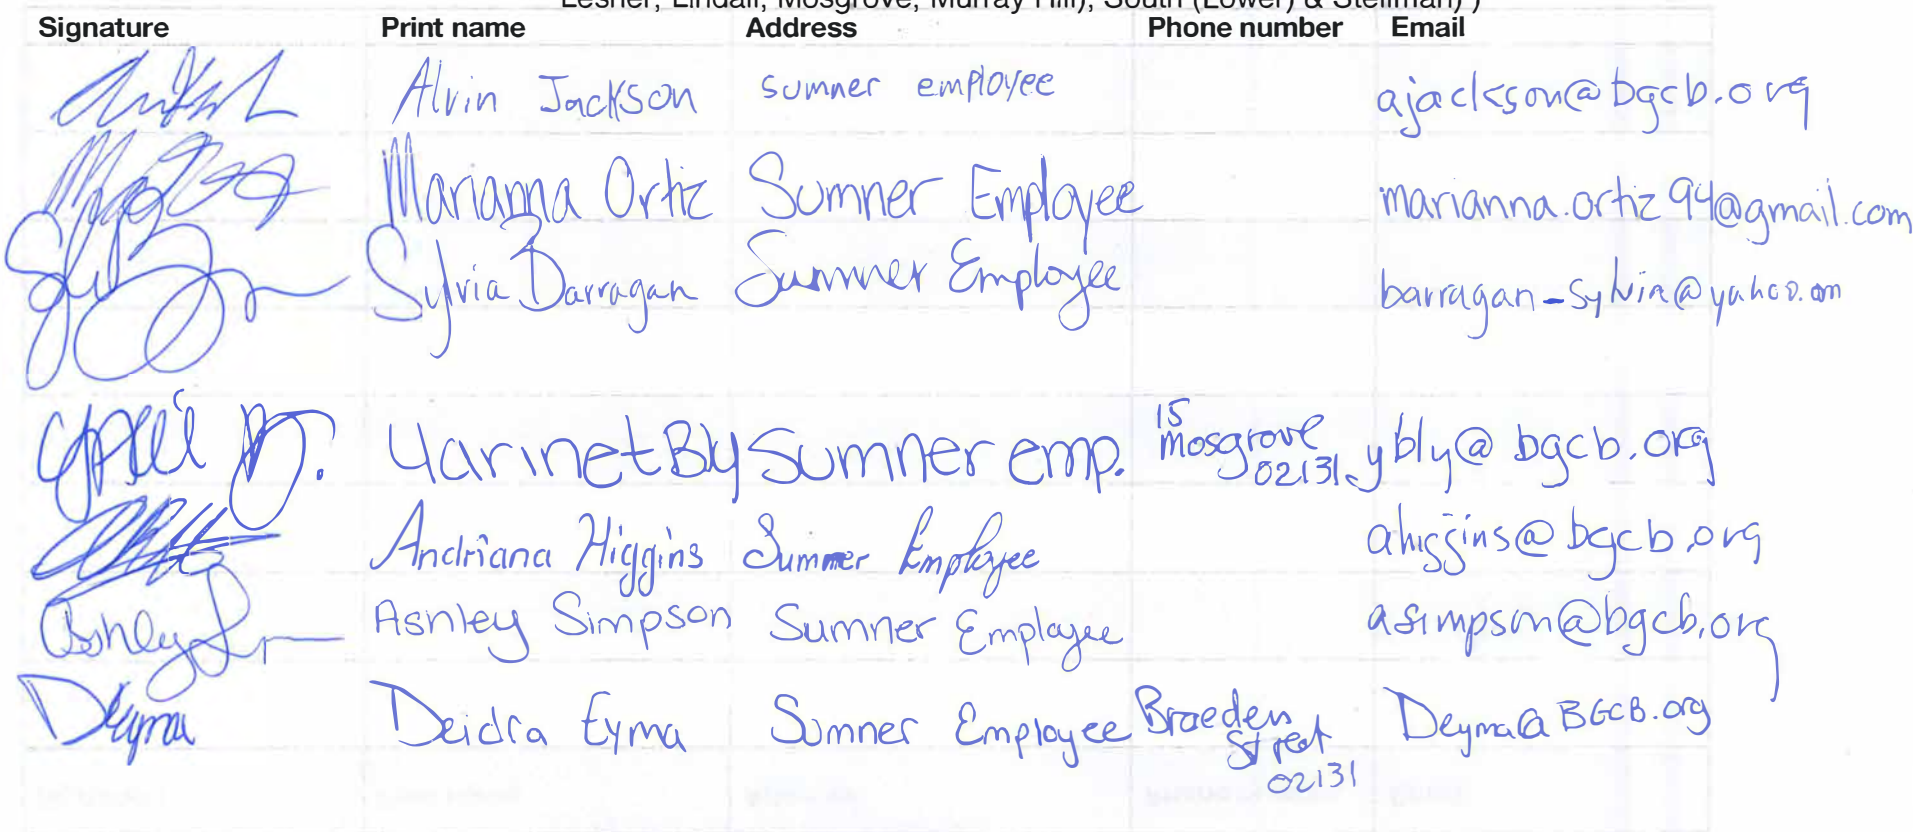 Lesher, Lindall, Mosgrove, Murray Hill), South (Lower) & Stellman) )
Signature Print name Address Phone number Email
Alvin Jackson sumner employee ajackson@bgcb.org
Marianna Ortiz Sumner Employee marianna.ortiz94@gmail.com
Sylvia Barragan Sumner Employee barragan-sylvia@yahoo.om
Yarinet Bly Sumner emp. 15 Mosgrove 02131 ybly@bgcb.org
Andriana Higgins Sumner Employee ahiggins@bgcb.org
Ashley Ashley Simpson Sumner Employee asimpson@bgcb.org
Deyma Deidra Eyma Sumner Employee Braeden Street 02131 Deyma@BGCB.org